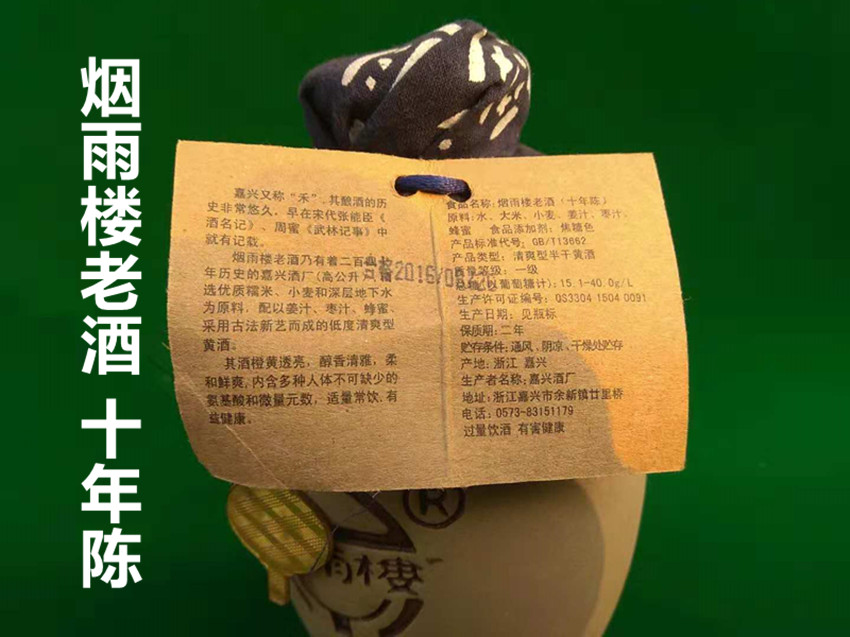 烟雨楼老酒 十年陈
嘉兴又称“禾”，其酿酒的历
史非常悠久，早在宋代张能臣《
酒名记》、周蜜《武林记事》中
就有记载。
烟雨楼老酒乃有着二百
年历史的嘉兴酒厂(高公升)
选优质糯米、小麦和深层地下水
为原料，配以姜汁、枣汁、蜂蜜、
采用古法新艺而成的低度清爽型
黄酒。
其酒橙黄透亮，醇香清雅，柔
和鲜爽，内含多种人体不可缺少的
氨基酸和微量元数，适量常饮，有
益健康。
食品名称：烟雨楼老酒（十年陈）
原料：水、大米、小麦、姜汁、枣汁、
蜂蜜 食品添加剂：焦糖色
产品标准代号：GB/T13662
产品类型：清爽型半干黄酒
质量等级：一级
总糖（以葡萄糖计）：15.1-40.0g/L
生产许可证编号：QS3304 1504 0091
生产日期：见瓶标
保质期：二年
贮存条件：通风、阴凉、干燥处贮存
产地：浙江 嘉兴
生产者名称：嘉兴酒厂
地址：浙江嘉兴市余新镇廿里桥
电话：0573-83151179
过量饮酒 有害健康
®
雨楼